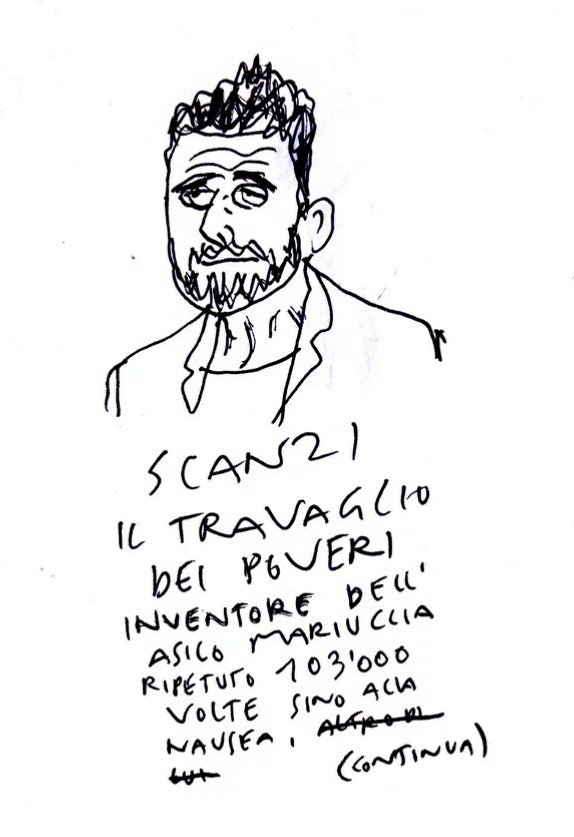 SCANZI
IL TRAVAGLIO
DEI POVERI
INVENTORE DELL'
ASILO MARIUCCIA
RIPETUTO 103'000
VOLTE SINO ALLA
NAUSEA, ALTRO DI
LUI (CONTINUA)